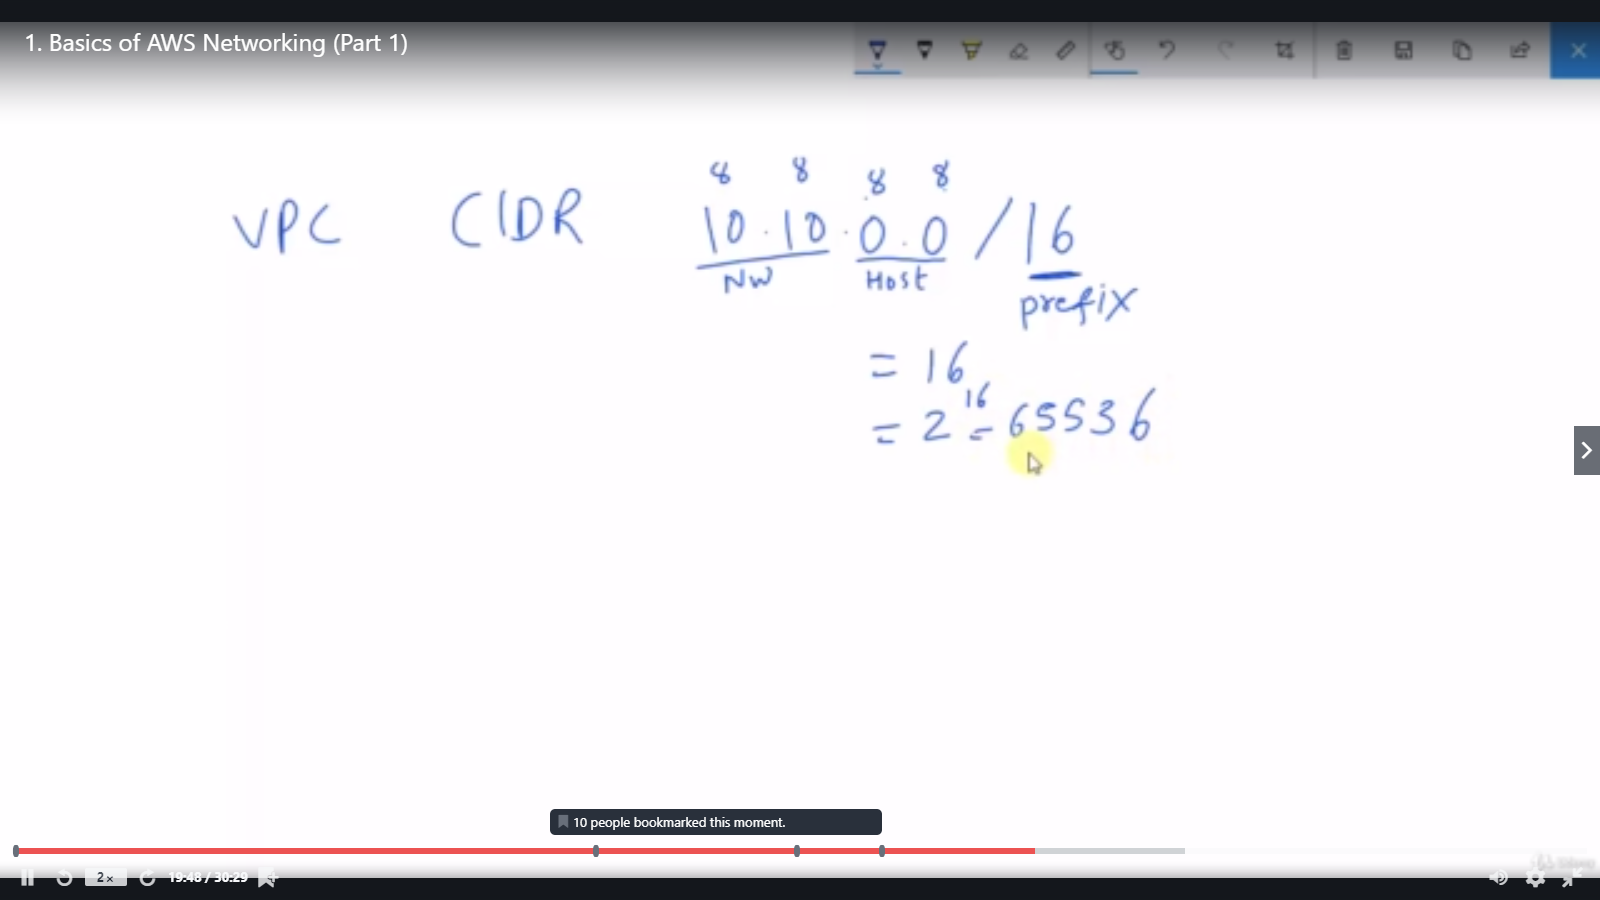 1. Basics of AWS Networking (Part 1)
8 8 8 8
VPC CIDR 10.10.0.0/16
NW Host prefix
= 16
= 2^16 = 65536
10 people bookmarked this moment.
2x 19:48 / 30:29